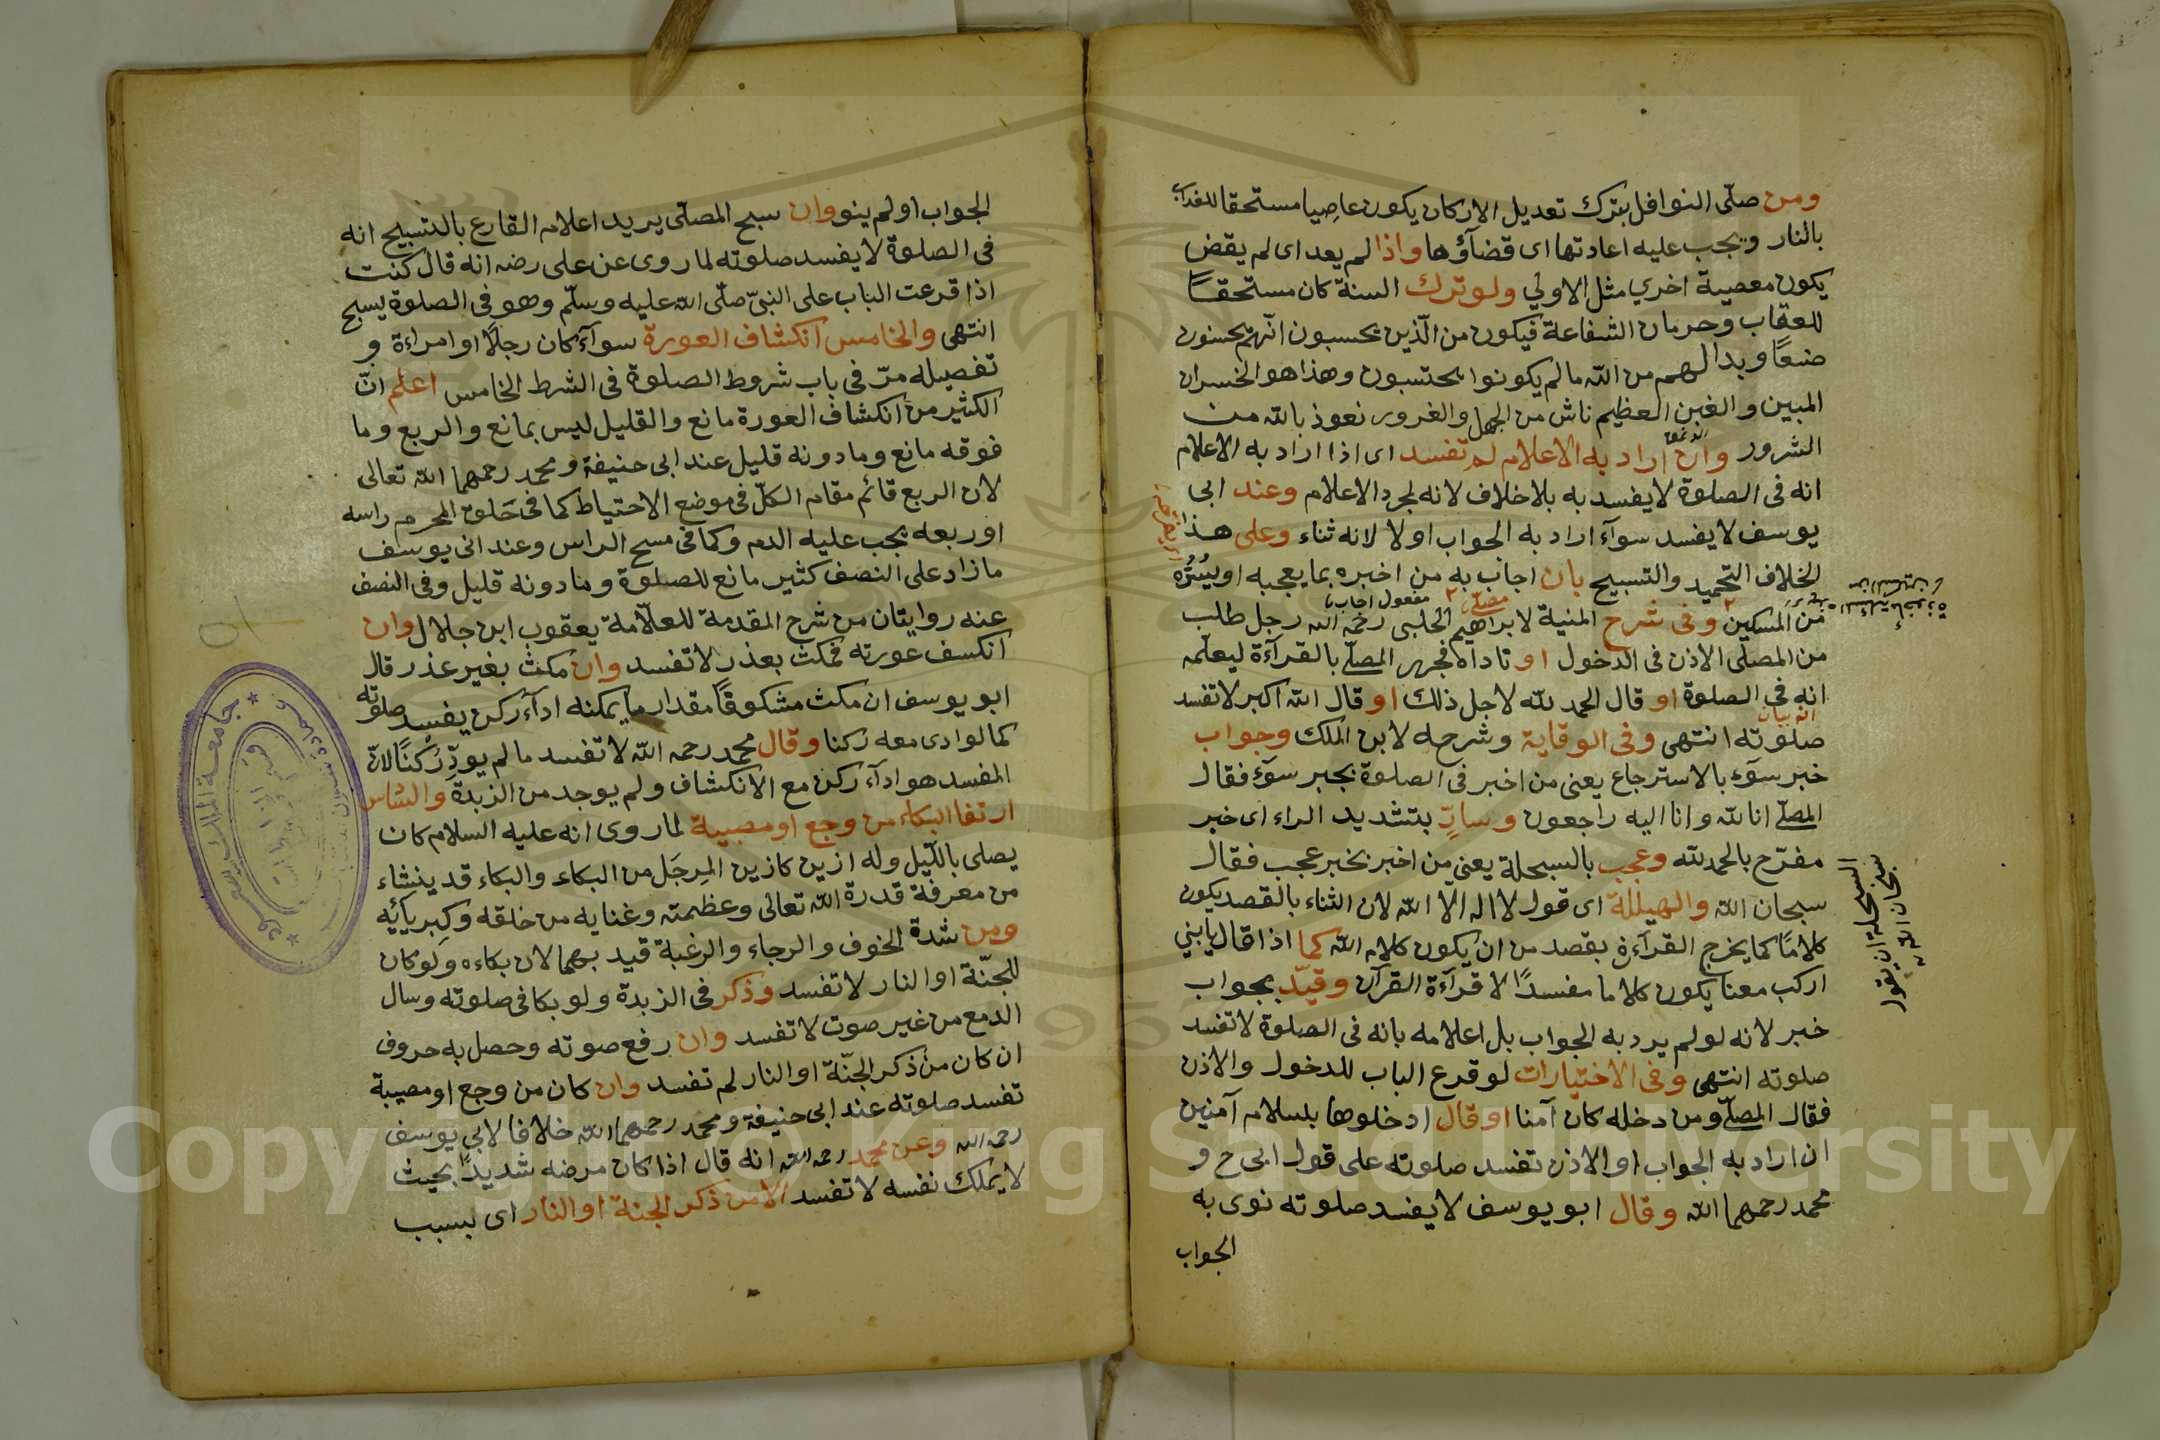 ومن صلّى النوافل بترك تعديل الاركان يكون عاصيا مستحقا للعذاب
بالنار ويجب عليه اعادتها اى قضاؤها واذا لم يعد اى لم يقض
يكون معصية اخري مثل الاولي ولو ترك السنة كان مستحقًا
للعقاب وحرمان الشفاعة فيكون من الّذين يحسبون انّهم يحسنون
صنعًا وبدا لهم من الله ما لم يكونوا يحتسبون وهذا هو الخسران
المبين والغبن العظيم ناش من الجهل والغرور نعوذ بالله من
الشرور وان اراد به الاعلام لم تفسد اى اذا اراد به الاعلام
انه فى الصلوة لا يفسد به بلا خلاف لانه لمجرد الاعلام وعند ابى
يوسف لا يفسد سوآء اراد به الجواب اولا لانه ثناء وعلى هذا
الخلاف التحميد والتسبيح بان اجاب به من اخبره بما يعجبه او يسرّه
مصلّى
مفعول اجاب
من المسكين وفى شرح المنية لابراهيم الحلبى رحمه الله رجل طلب
من المصلّى الاذن فى الدخول او ناداه فجهر المصلّى بالقرآءة ليعلّمه
انه فى الصلوة او قال الحمد لله لاجل ذلك او قال الله اكبر لا تفسد
صلوته انتهى وفى الوقاية وشرحه لابن الملك وجواب
خبر سوء بالاسترجاع يعنى من اخبر فى الصلوة بخبر سوء فقال
المصلّى انا لله وانا اليه راجعون وسارّ بتشديد الراء اى خبر
مفرّح بالحمد لله وعجب بالسبحلة يعنى من اخبر بخبر عجب فقال
سبحان الله والهيللة اى قول لا اله الا الله لان الثناء بالقصد يكون
كلامًا كما يخرج القرآءة بقصد من ان يكون كلام الله كما اذا قال يا بني
اركب معنا يكون كلاما مفسدًا لا قرآءة القرآن وقيّد بجواب
خبر لانه لو لم يرد به الجواب بل اعلامه بانه فى الصلوة لا تفسد
صلوته انتهى وفى الاختيارات لو قرع الباب للدخول والاذن
فقال المصلّى ومن دخله كان آمنا او قال ادخلوها بسلام آمنين
ان اراد به الجواب او الاذن تفسد صلوته على قول ابى ح و
محمد رحمهما الله وقال ابو يوسف لا يفسد صلوته نوى به
الجواب
السبحلة ان يقول
سبحان الله
الجواب او لم ينو وان سبح المصلّى يريد اعلام القارع بالتسبيح انه
فى الصلوة لا يفسد صلوته لما روى عن على رضه انه قال كنت
اذا قرعت الباب على النبىّ صلّى الله عليه وسلّم وهو فى الصلوة يسبح
انتهى والخامس انكشاف العورة سوآء كان رجلًا او امراءة و
تفصيله مرّ فى باب شروط الصلوة فى الشرط الخامس اعلم انّ
الكثير من انكشاف العورة مانع والقليل ليس بمانع والربع وما
فوقه مانع وما دونه قليل عند ابى حنيفة ومحمد رحمهما الله تعالى
لان الربع قائم مقام الكلّ فى موضع الاحتياط كما فى حلق المحرم راسه
او ربعه يجب عليه الدم وكما فى مسح الراس وعند ابى يوسف
ما زاد على النصف كثير مانع للصلوة وما دونه قليل وفى النصف
عنه روايتان من شرح المقدمة للعلّامة يعقوب ابن جلال وان
انكسف عورته فمكث بعذر لا تفسد وان مكث بغير عذر قال
ابو يوسف ان مكث مشكوفًا مقدار ما يمكنه ادآء ركن يفسد صلوته
كما لو ادى معه ركنا وقال محمد رحمه الله لا تفسد ما لم يودّ ركنًا لانّ
المفسد هو ادآء ركن مع الانكشاف ولم يوجد من الزبدة والسادس
ارتفاع البكاء من وجع او مصيبة لما روى انه عليه السلام كان
يصلى بالّيل وله ازين كازين المرجل من البكاء والبكاء قد ينشاء
من معرفة قدرة الله تعالى وعظمته وغنايه من خلقه وكبريائه
ومن شدة الخوف والرجاء والرغبة قيد بهما لان بكاءه ولو كان
للجنّة او النار لا تفسد وذكر فى الزبدة ولو بكا فى صلوته وسال
الدمع من غير صوت لا تفسد وان رفع صوته وحصل به حروف
ان كان من ذكر الجنّة او النار لم تفسد وان كان من وجع او مصيبة
تفسد صلوته عند ابى حنيفة ومحمد رحمهما الله خلافا لابى يوسف
رحمه الله وعن محمد رحمه الله انه قال اذا كان مرضه شديدًا بحيث
لا يملك نفسه لا تفسد الا من ذكر الجنة او النار اى بسبب
جامعة الملك سعود
Copyright © King Saud University